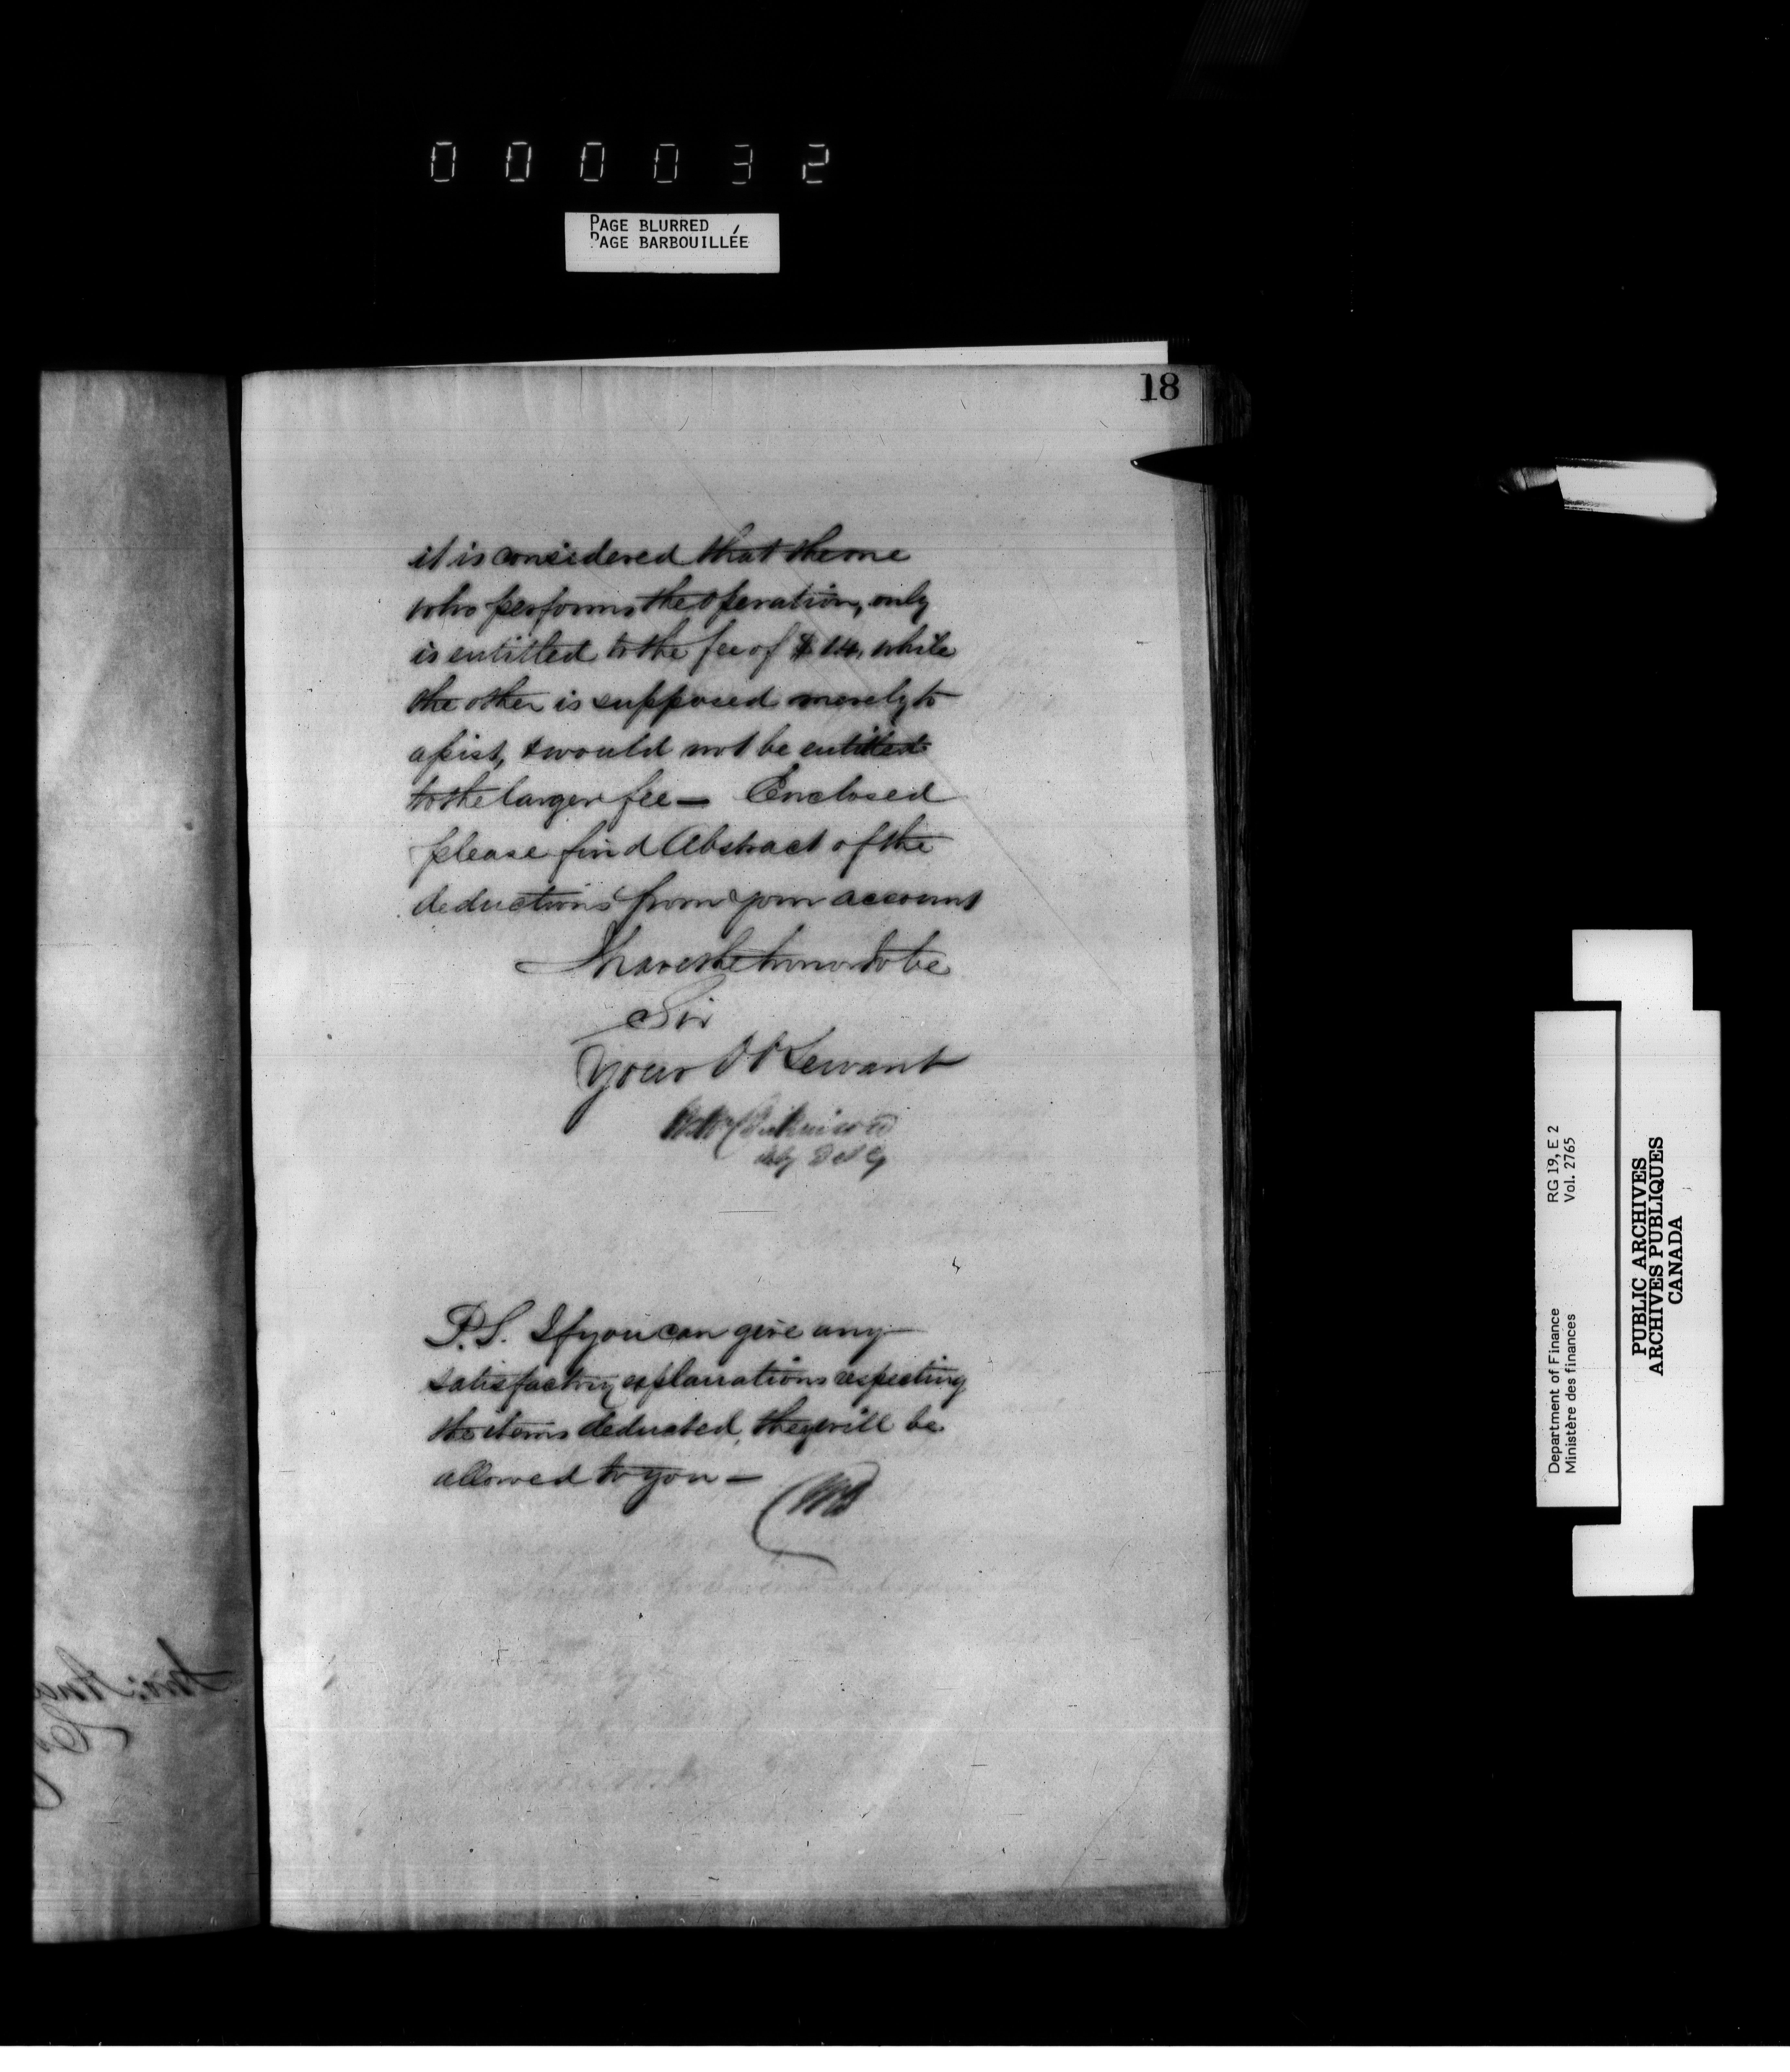 000032
PAGE BLURRED
PAGE BARBOUILLÉE
18
it is considered that the one
who performs the operation, only
is entitled to the fee of $14. while
the other is supposed merely to
assist, & would not be entitled
to the larger fee — Enclosed
please find Abstract of the
deductions from your account
I have the honor to be
Sir
Your Ob Servant
Wm Dickinson
Dy I G
P.S. If you can give any
satisfactory explanations respecting
the items deducted, they will be
allowed to you —
WD
Department of Finance RG 19, E 2
Ministère des finances Vol. 2765
PUBLIC ARCHIVES
ARCHIVES PUBLIQUES
CANADA